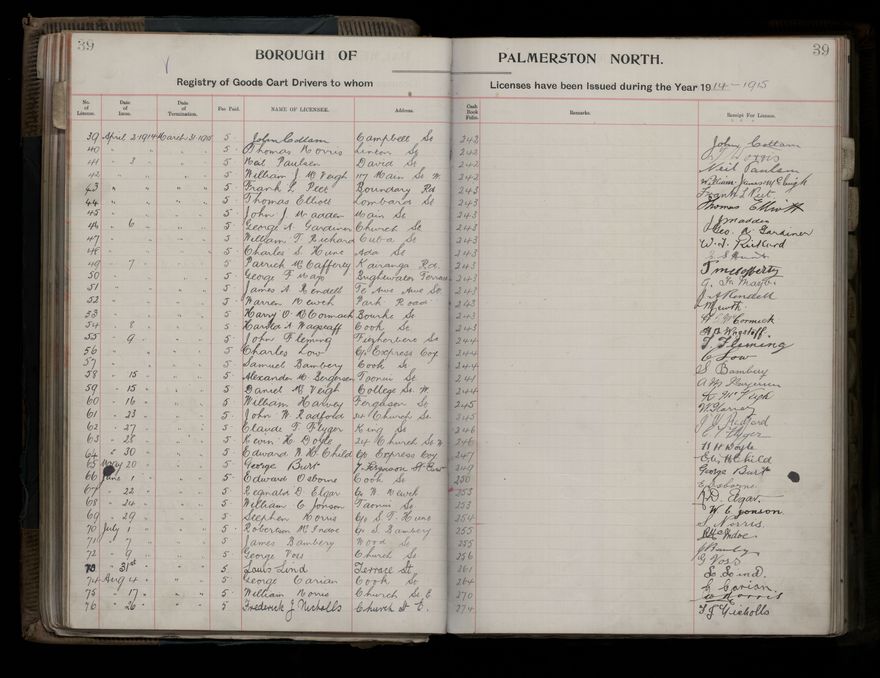 39
39
BOROUGH OF PALMERSTON NORTH.
Registry of Goods Cart Drivers to whom Licenses have been Issued during the Year 1914-1915
No. of License. Date of Issue. Date of Termination. Fee Paid. NAME OF LICENSEE. Address. Cash Book Folio. Remarks. Receipt For License.
39 April 2 1914 March 31 1915 5 John Cottam Campbell St 242 John Cottam
40 " " " " 5 Thomas Norris Linton St 242 Norris
41 " 3 " " " 5 Neil Paulsen David St 242 Neil Paulsen
42 " " " " 5 William J McVeigh 117 Main St W 242 William James McVeigh
43 " " " " 5 Frank L Peet Boundary Rd 243 Frank L Peet
44 " " " " 5 Thomas Elliott Lombard St 243 Thomas Elliott
45 " " " " 5 John J Madden Main St 243 J Madden
46 " 6 " " " 5 George A Gardiner Church St 243 Geo. A Gardiner
47 " " " " 5 William T Richard Cuba St 243 W. T.
48 " " " " 5 Charles S Hunt Ada St 243
49 " 7 " " " 5 Patrick McCafferty Kairanga Rd 243
50 " " " " 5 George F Mayo Bughwater Terrace 243
51 " " " " 5 James A Rendell Te Awe Awe St 243 J A Rendell
52 " " " " 5 Warren Newth Park Road 243
53 " " " " 5 Harry O McCormack Bourke St 243 McCormick
54 " 8 " " " 5 Harold A Wagstaff Cook St 244 Wagstaff
55 " 9 " " " 5 John Fleming Featherston St 244 J. Fleming
56 " " " " 5 Charles Low C/o Express Coy 244 C Low
57 " " " " 5 Samuel Bambery Cook St 244 S Bambery
58 " 15 " " " 5 Alexander M Taonui St 241
59 " 15 " " " 5 Daniel McVeigh College St. W 244
60 " 16 " " " 5 William Harvey Ferguson St 245 W Harvey
61 " 23 " " " 5 John W Radford 34 Church St 245 Radford
62 " 27 " " " 5 Claude F Flyger King St 246 Flyger
63 " 28 " " " 5 Kevin H Doyle 24 Church St W 246 Doyle
64 " 30 " " " 5 Edward W H Child C/o Express Coy 247 Child
65 May 20 " " " 5 George Burt 7 Ferguson St East 249 George Burt
66 June 1 " " " 5 Edward Osborne Cook St 250 E Osborne
67 " 22 " " " 5 Reginald D Elgar C/o W Newth 253 R. D. Elgar
68 " 24 " " " 5 William C Jonson Taonui St 253 W C Jonson
69 " 29 " " " 5 Stephen Norris C/o S F Hunt 254 S Norris
70 July 1 " " " 5 Robertson McIndoe C/o S Bambery 255 McIndoe
71 " 7 " " " 5 James Bambery Wood St 255
72 " 9 " " " 5 George Voss Church St 256 G Voss
73 " 31st " " " 5 Louis Lind Terrace St 261 L Lind
74 Aug 4 " " " 5 George Carian Cook St 264 G Carian
75 " 17 " " " 5 William Norris Church St E 270 W Norris
76 " 26 " " " 5 Frederick J Nicholls Church St E. 274 F J Nicholls